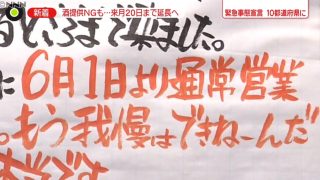 ©NNN
新着
酒提供NGも…来月20日まで延長へ
緊急事態宣言 10都道府県に
ろまで来ました。
に6月1日より通常営業
。もう我慢はできねーんだ